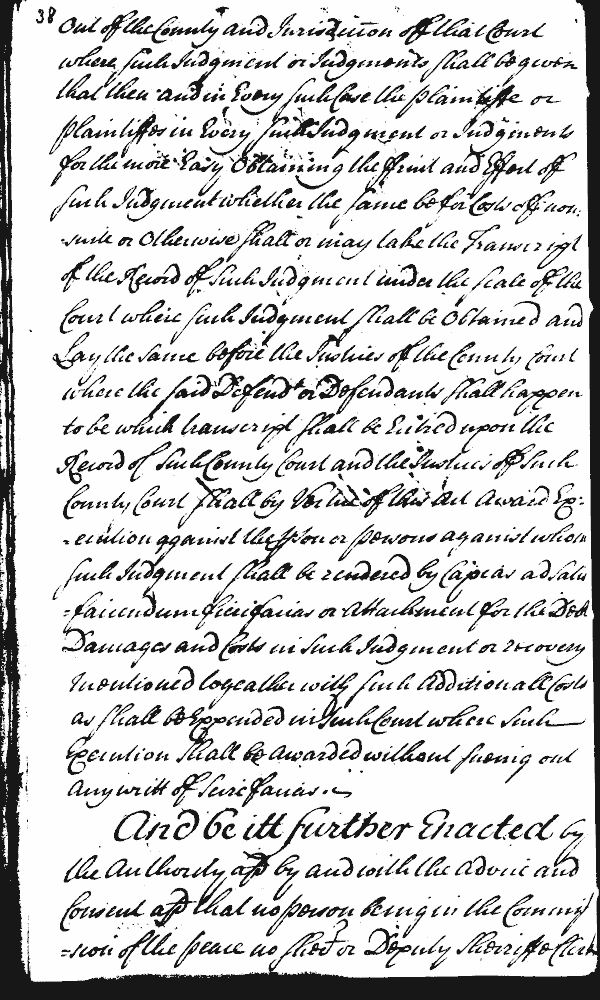 38
Out of the County and Jurisdiccon of that Court
where such Judgment or Judgments shall be given
that then and in Every such Case the plaintiffe or
plaintiffes in Every such Judgment or Judgments
for the more Easy Obtaining the ffruit and Effect of
such Judgment whether the same be for Costs of non-
-suite or Otherwise shall or may take the Transcript
of the Record of such Judgment under the seale of the
Court where such Judgment shall be Obtained and
Lay the same before the Justices of the County Court
where the said Defend.t or Defendants shall happen
to be which transcript shall be Entred upon the
Record of such County Court and the Justices of such
County Court shall by Vertue of this Act Award Ex-
-ecution against the p̃son or persons against whom
such Judgment shall be rendered by Capias ad satis
-faciendum fierifacias or Attachment for the Debt
Damages and Costs in such Judgment or recovery
mentioned togeather with such Additionall Costs
as shall be Expended in such Court where such
Execution shall be awarded without sueing out
any writt of Scire facias.
And be itt further Enacted by
the Authority afd by and with the Advice and
Consent afd that no person being in the Commis
-sion of the peace no Sherr or Deputy Sherriffe Clerk